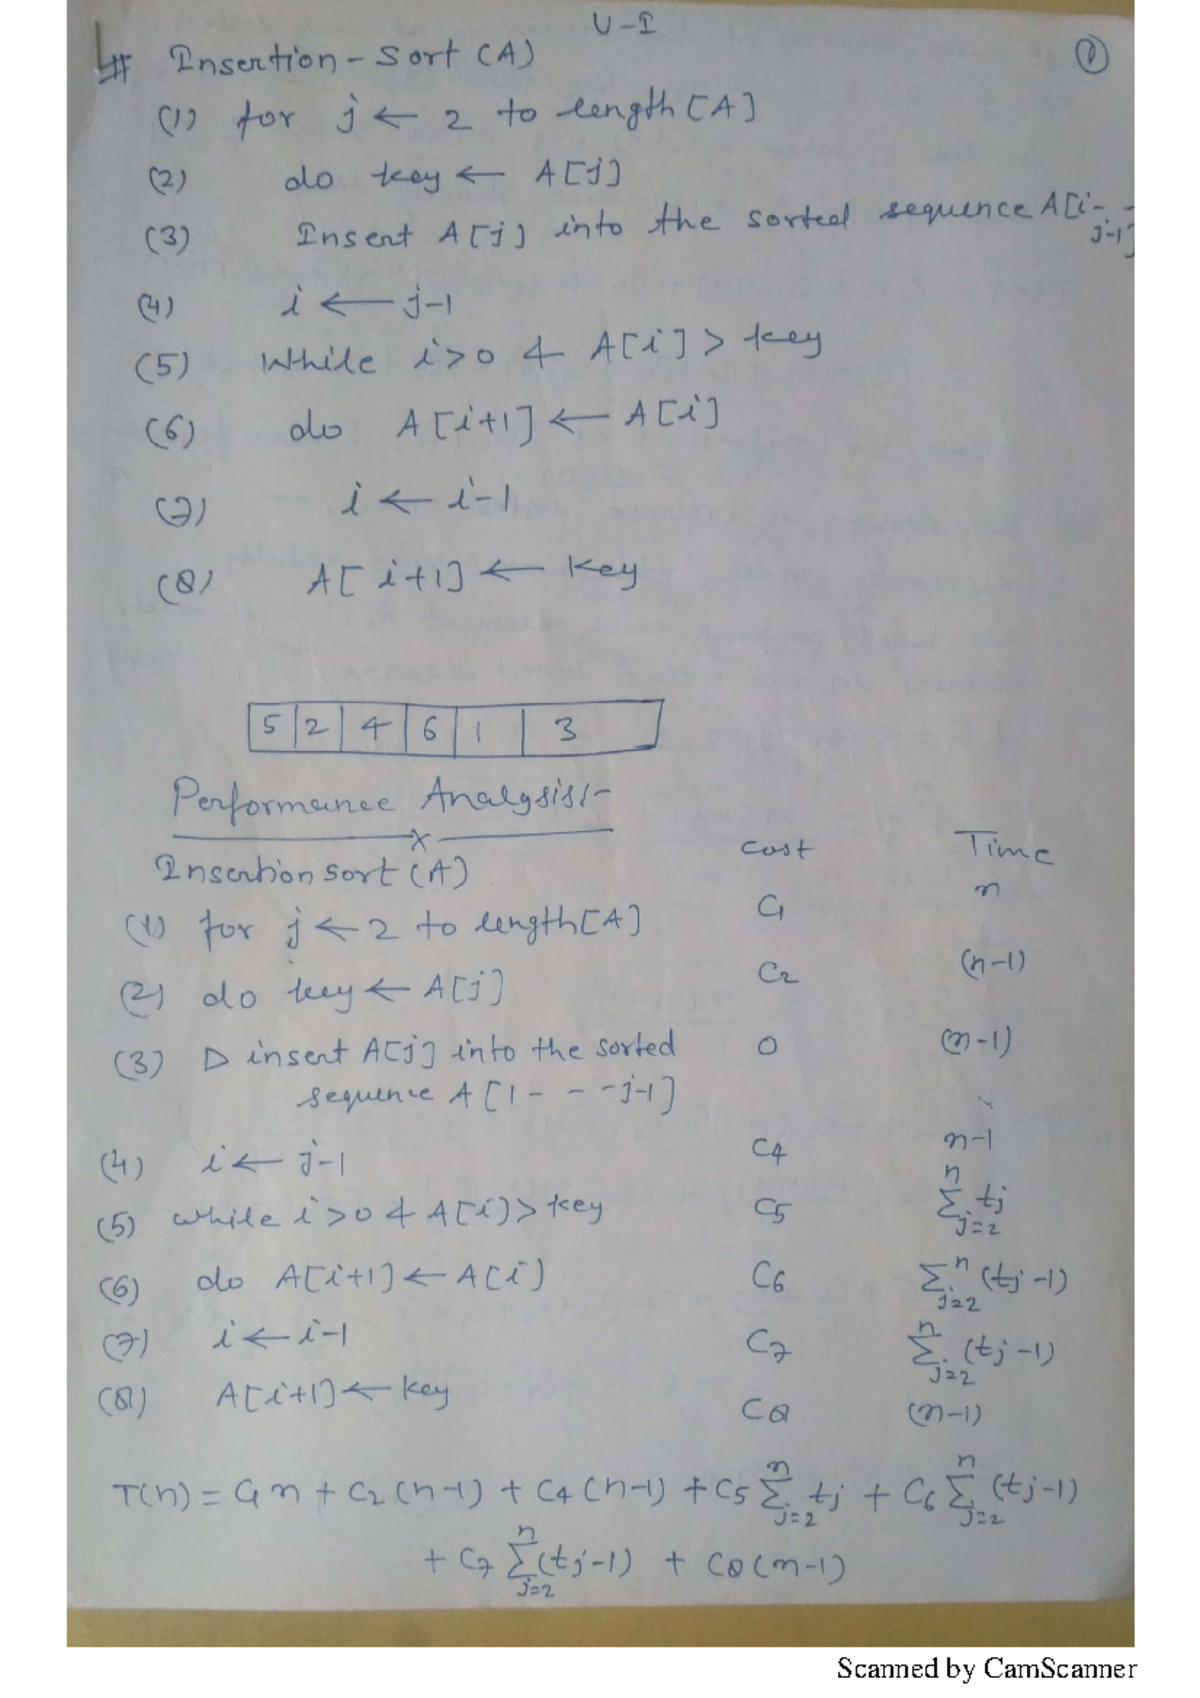 U-I
# Insertion-Sort (A)
(1)
(1) for j ← 2 to length[A]
(2) do key ← A[j]
(3) Insert A[j] into the sorted sequence A[i- -
j-1]
(4) i ← j-1
(5) While i>0 & A[i] > key
(6) do A[i+1] ← A[i]
(7) i ← i-1
(8) A[i+1] ← key
5 2 4 6 1 3
Performance Analysis:-
Insertion sort (A) cost Time
(1) for j ← 2 to length[A] C1 n
(2) do key ← A[j] C2 (n-1)
(3) ▷ insert A[j] into the sorted 0 (n-1)
sequence A[1 - - - j-1]
(4) i ← j-1 C4 n-1
(5) while i>0 & A[i]>key C5 n∑j=2 tj
(6) do A[i+1] ← A[i] C6 n∑j=2 (tj-1)
(7) i ← i-1 C7 n∑j=2 (tj-1)
(8) A[i+1] ← key C8 (n-1)
T(n) = C1n + C2(n-1) + C4(n-1) + C5 n∑j=2 tj + C6 n∑j=2 (tj-1)
+ C7 n∑j=2 (tj-1) + C8(n-1)
Scanned by CamScanner